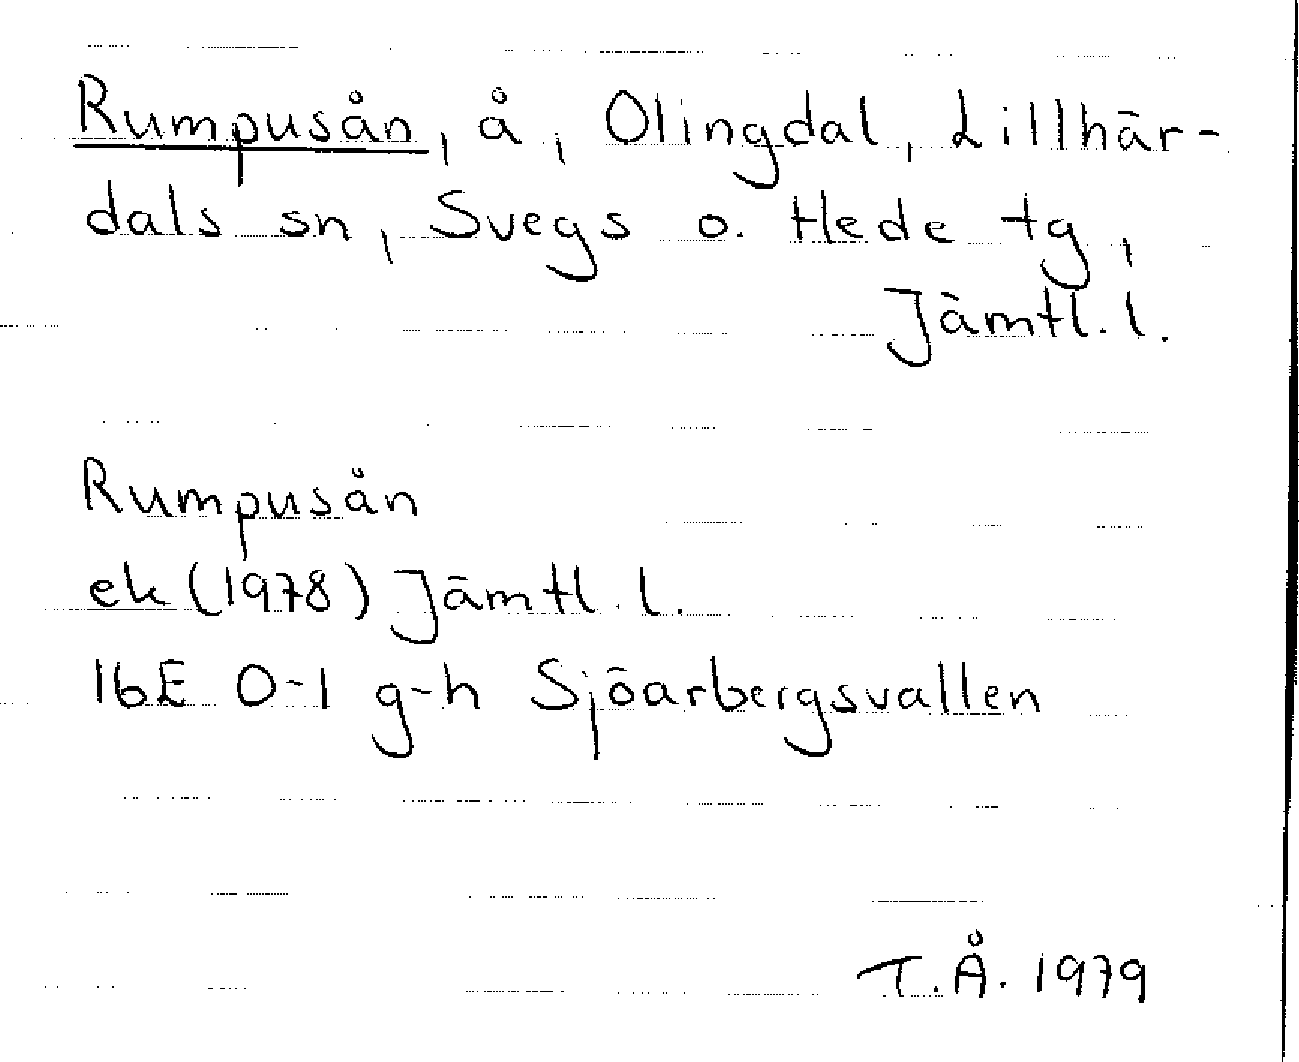 Rumpusån, å, Olingdal, Lillhär-
dals sn, Svegs o. Hede tg,
Jämtl. l.
Rumpusån
ek (1978) Jämtl. l.
16E 0-1 g-h Sjöarbergsvallen
T.Å. 1979